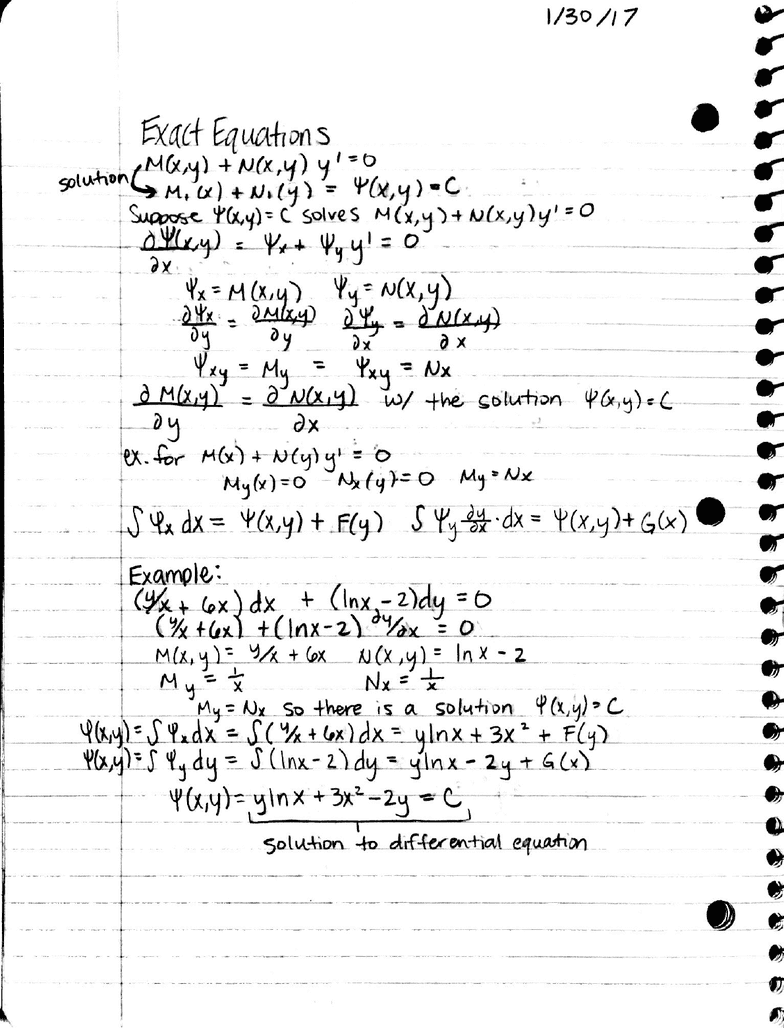 1/30/17
Exact Equations
M(x,y) + N(x,y) y' = 0
solution M₁(x) + N₁(y) = Ψ(x,y) = C
Suppose Ψ(x,y) = C solves M(x,y) + N(x,y)y' = 0
∂Ψ(x,y)/∂x = Ψx + Ψy y' = 0
Ψx = M(x,y) Ψy = N(x,y)
∂Ψx/∂y = ∂M(x,y)/∂y ∂Ψy/∂x = ∂N(x,y)/∂x
Ψxy = My = Ψxy = Nx
∂M(x,y)/∂y = ∂N(x,y)/∂x w/ the solution Ψ(x,y) = C
ex. for M(x) + N(y) y' = 0
My(x) = 0 Nx(y) = 0 My = Nx
∫ Ψx dx = Ψ(x,y) + F(y) ∫ Ψy ∂y/∂x · dx = Ψ(x,y) + G(x)
Example:
(y/x + 6x) dx + (lnx - 2)dy = 0
(y/x + 6x) + (lnx - 2) ∂y/∂x = 0
M(x,y) = y/x + 6x N(x,y) = ln x - 2
My = 1/x Nx = 1/x
My = Nx so there is a solution Ψ(x,y) = C
Ψ(x,y) = ∫ Ψx dx = ∫(y/x + 6x) dx = ylnx + 3x² + F(y)
Ψ(x,y) = ∫ Ψy dy = ∫(lnx - 2) dy = ylnx - 2y + G(x)
Ψ(x,y) = ylnx + 3x² - 2y = C
solution to differential equation